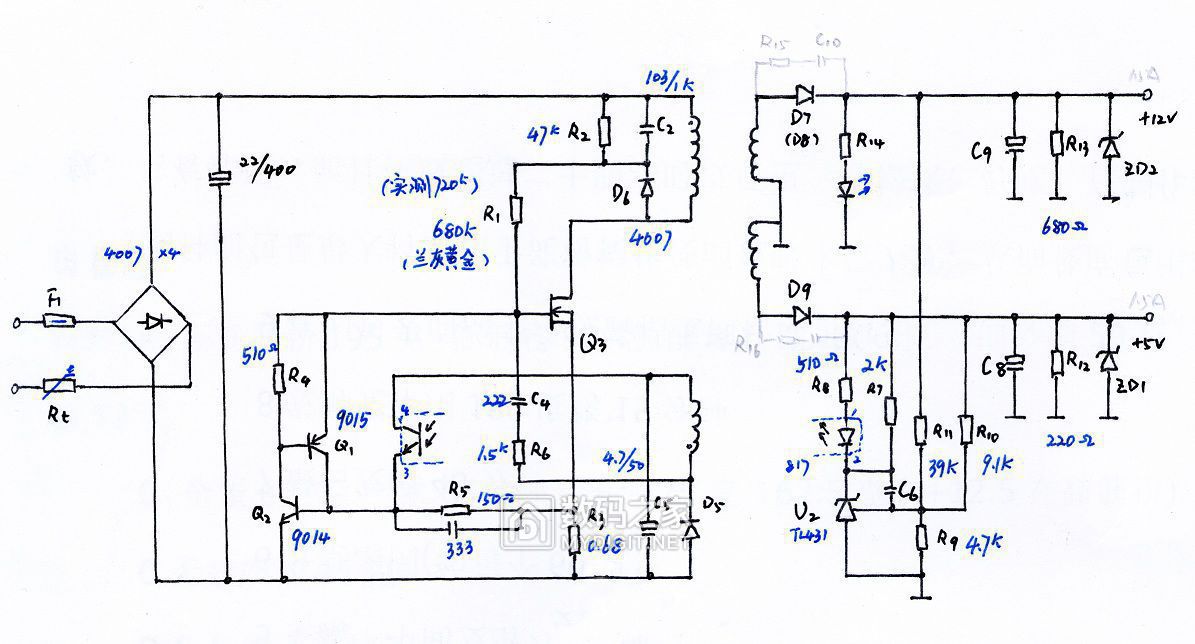 R15 C10
103/1K
1.5A
+12V
47K R2 C2
D7
(D8)
R14
C9 R13 ZD2
22/400
(实测720K)
R1
D6
680K
(兰灰黄金)
4007
680Ω
4007 x4
F1
D9
1.5A
Q3
R16
+5V
510Ω
R4
510Ω
2K
C8 R12 ZD1
Rt
222 C4
R8 R7
9015
4
Q1
1
R11 R10
220Ω
3
1.5K R6
4.7/50
817
2
39K 9.1K
R5
150Ω
C6
Q2
R3
C5
D5
U2
TL431
9014
333
0.68
R9 4.7K
数码之家
MYDIGIT.NET